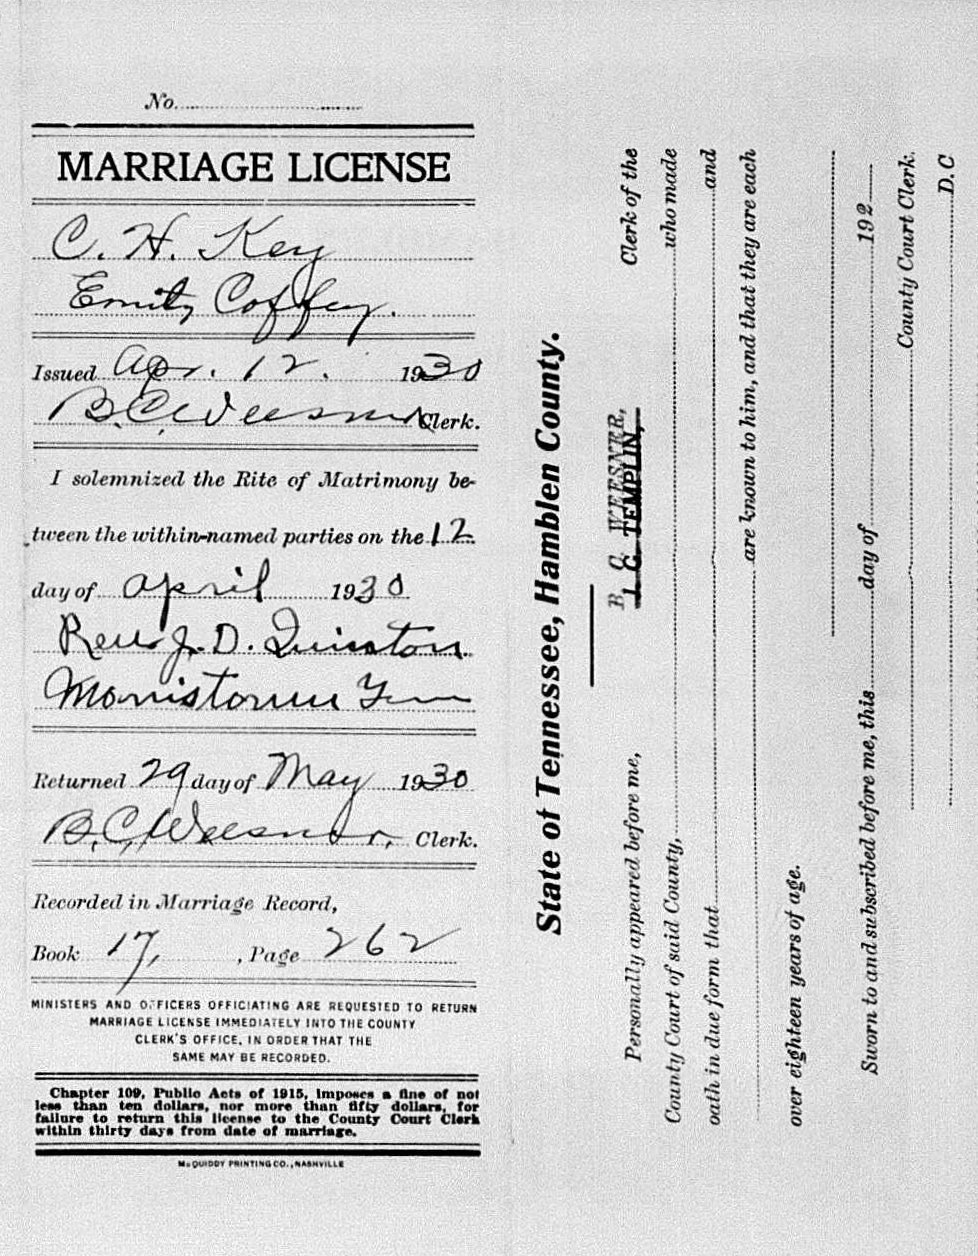 No.
MARRIAGE LICENSE
C. H. Key
Emily Coffey.
Issued Apr. 12. 1930
B.C. Weesner Clerk.
I solemnized the Rite of Matrimony be-
tween the within-named parties on the 12
day of April 1930
Rev J. D. Quinton
Morristown Tenn
Returned 29 day of May 1930
B.C. Weesner, Clerk.
Recorded in Marriage Record,
Book 17, , Page 262
MINISTERS AND OFFICERS OFFICIATING ARE REQUESTED TO RETURN
MARRIAGE LICENSE IMMEDIATELY INTO THE COUNTY
CLERK'S OFFICE, IN ORDER THAT THE
SAME MAY BE RECORDED.
Chapter 109, Public Acts of 1915, imposes a fine of not
less than ten dollars, nor more than fifty dollars, for
failure to return this license to the County Court Clerk
within thirty days from date of marriage.
McQUIDDY PRINTING CO., NASHVILLE
State of Tennessee, Hamblen County.
B. C. WEESNER,
J. C. TEMPLIN,
Personally appeared before me, Clerk of the
County Court of said County, who made
oath in due form that and
are known to him, and that they are each
over eighteen years of age.
Sworn to and subscribed before me, this day of 192
County Court Clerk.
D. C